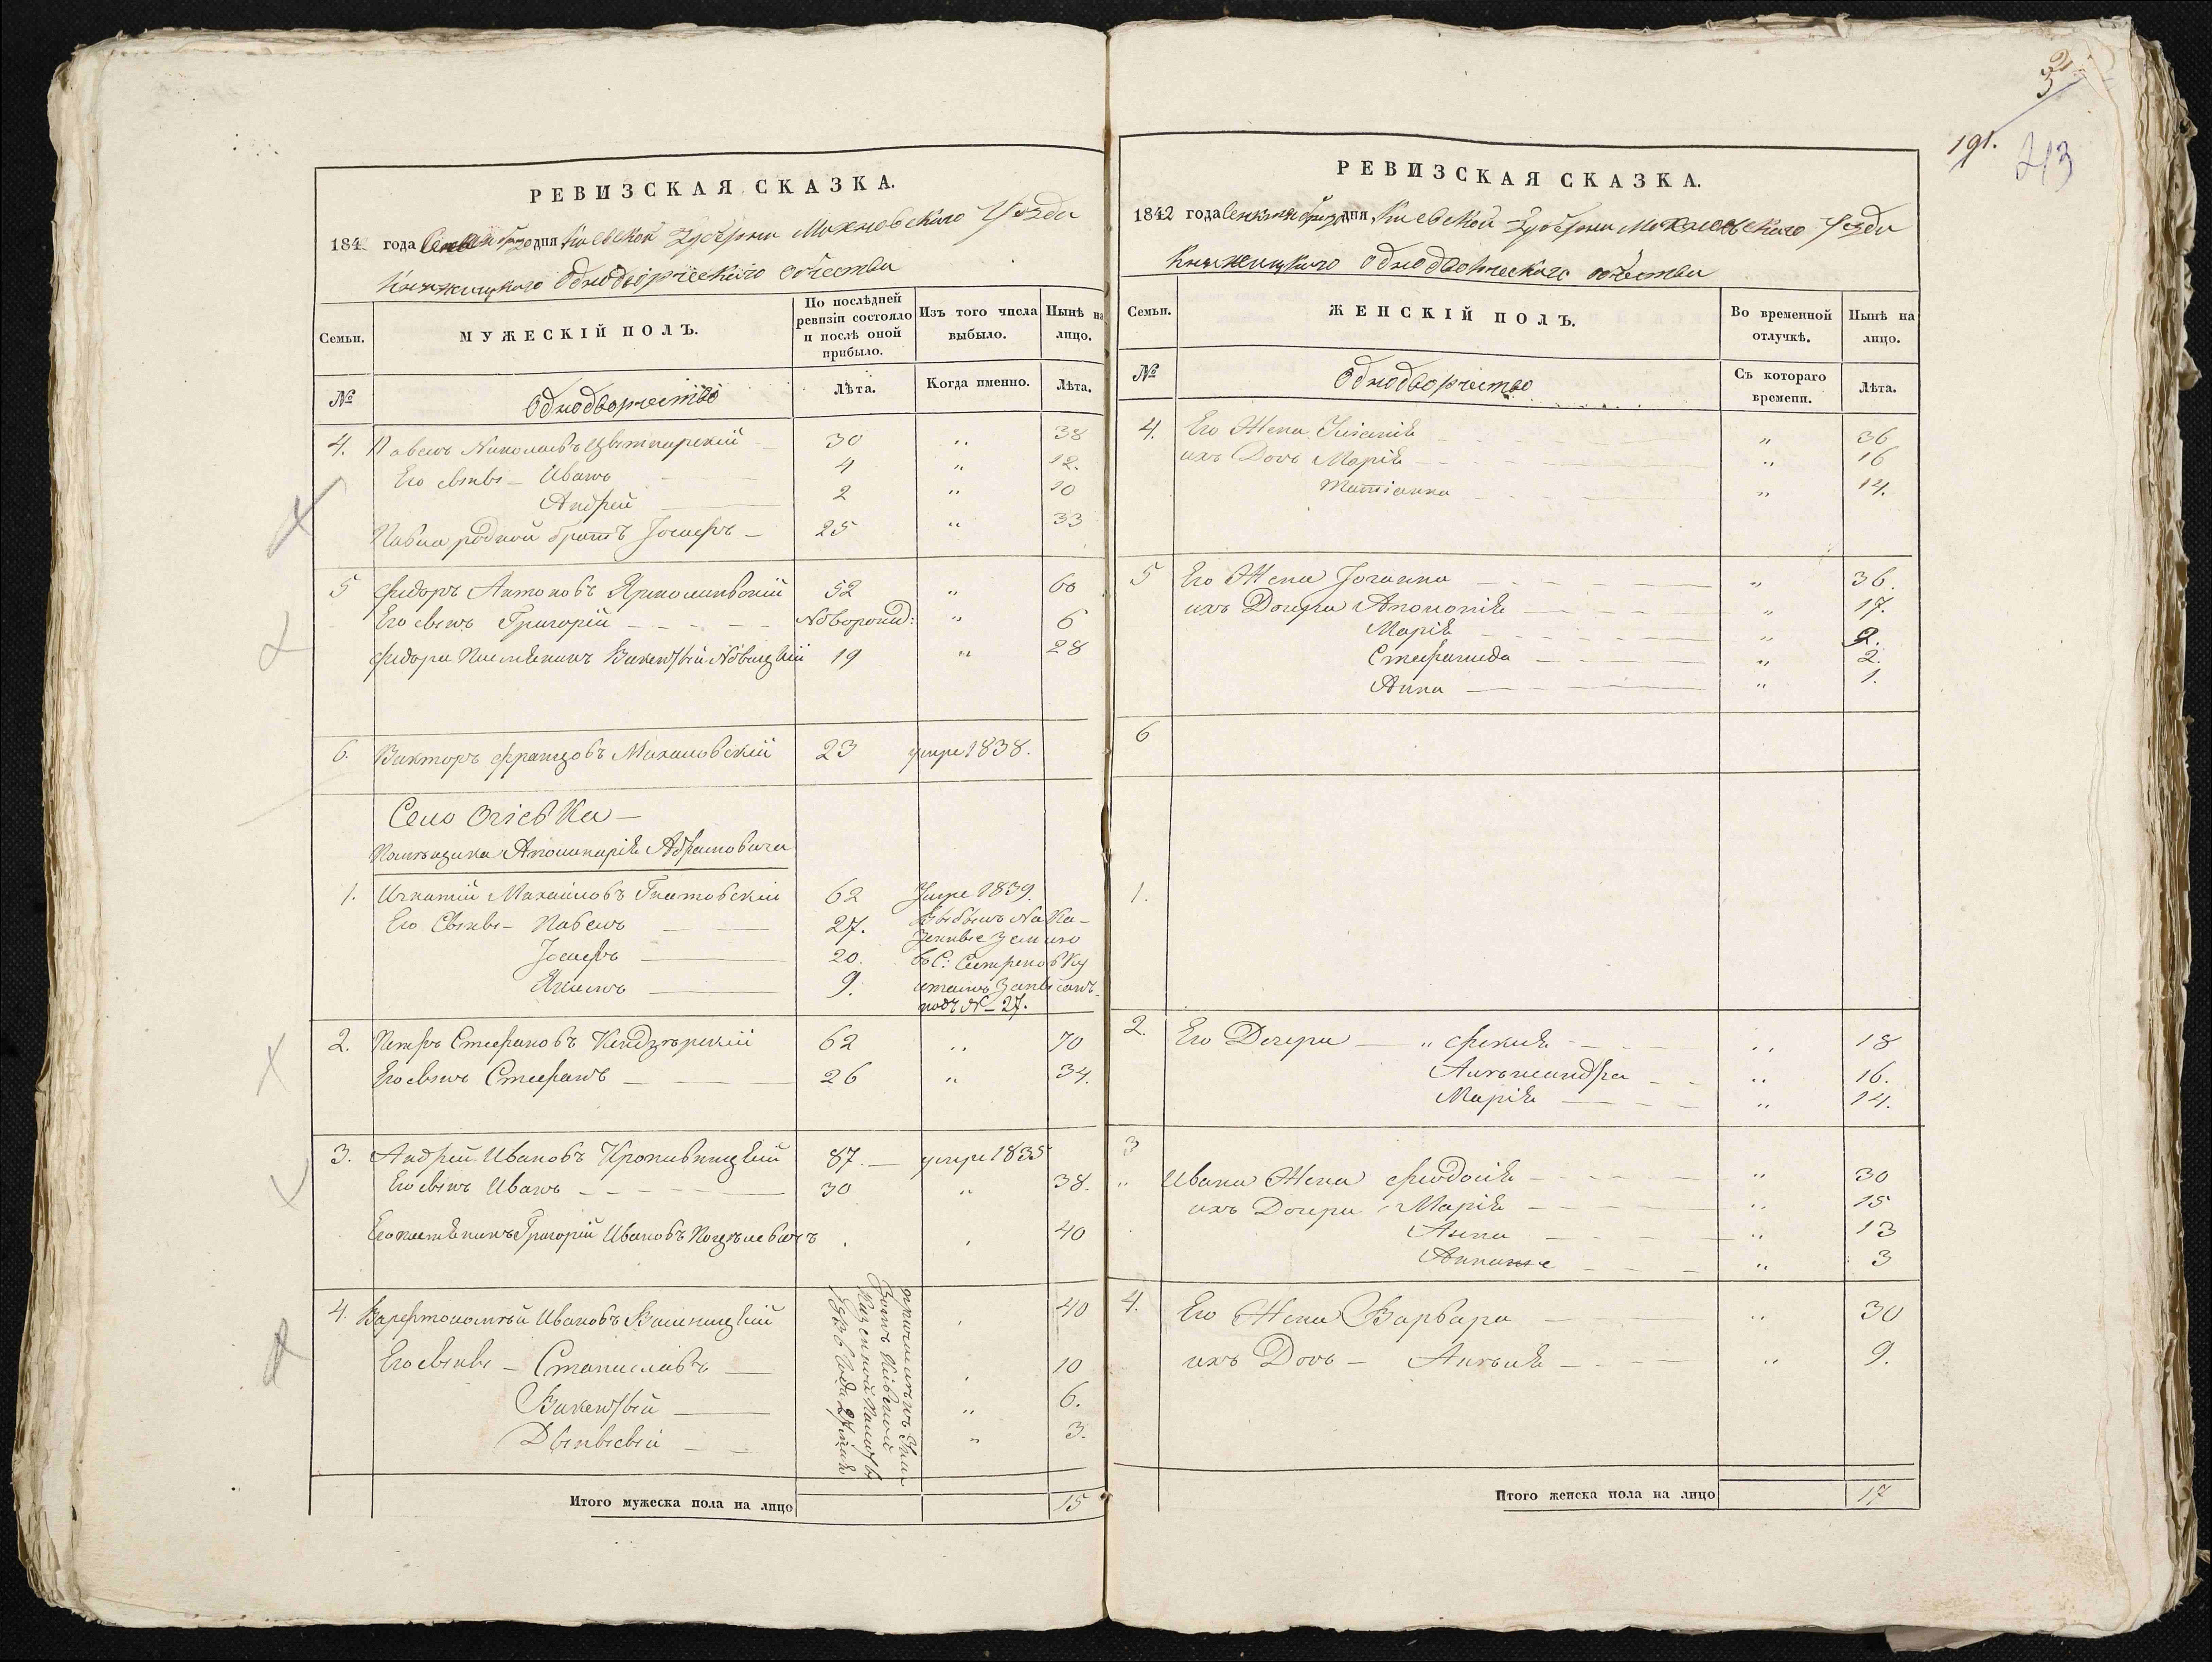 РЕВИЗСКАЯ СКАЗКА.
184 года дня Киевской Губернии Махновского Уезда
Княжицкого Однодворческого общества
Семьи. МУЖЕСКІЙ ПОЛЪ. По послѣдней ревизіи состояло и послѣ оной прибыло. Изъ того числа выбыло. Нынѣ на лицо.
№ Однодворчество Лѣта. Когда именно. Лѣта.
4. Павелъ Николаевъ 30 " 38
Его сыны - Иванъ 4 " 12.
Андрей 2 " 10
Павла родной братъ Іосифъ - 25 " 33
5 Фидоръ Антоновъ 52 " 60
Его сынъ Григорій Новорожд: " 6
Фидора племянникъ Викентый Новицкій 19 " 28
6. Викторъ Францовъ Махновскій 23 умре 1838.
Село
Помѣщика Аполинарія Абрамовича
1. Игнатій Михайловъ Гнатовскій 62 Умре 1839.
Его Сыны - Павелъ 27. Выбылъ На Ка-
зенные земли
Іосифъ 20. в С:
Якимъ 9. и тамъ Записанъ
подъ № 27.
2. Петръ Стефановъ 62 " 70
Его сынъ Стефанъ 26 " 34.
3. Андрей Ивановъ Кропивницкій 87. умре 1835
Его сынъ Иванъ 30 " 38.
Его племянникъ Григорій Ивановъ 40
4. Ивановъ 40
Его сыны - Станиславъ 10
Викентый " 6.
Діонысый " 3.
Казенной Палаты
1836 Года
Итого мужеска пола на лицо 15
РЕВИЗСКАЯ СКАЗКА.
1842 года дня Киевской Губернии Махновского Уезда
Княжицкого Однодворческого общества
Семьи. ЖЕНСКІЙ ПОЛЪ. Во временной отлучкѣ. Нынѣ на лицо.
№ Однодворчество Съ котораго времени. Лѣта.
4. Его Жена " 36
ихъ Дочь Марія " 16
Татіанна " 14.
5 Его Жена Іоганна " 36.
ихъ Дочери Аполонія " 17.
Марія " 9.
Стефанида " 2.
Анна " 1.
6
1.
2. Его Дочери " 18
Александра " 16.
Марія " 14.
3
" Ивана Жена Феодосія " 30
ихъ Дочери Марія " 15
" 13
" 3
4. Его Жена Варвара " 30
ихъ Дочь - " 9.
Итого женска пола на лицо 17
191.
213